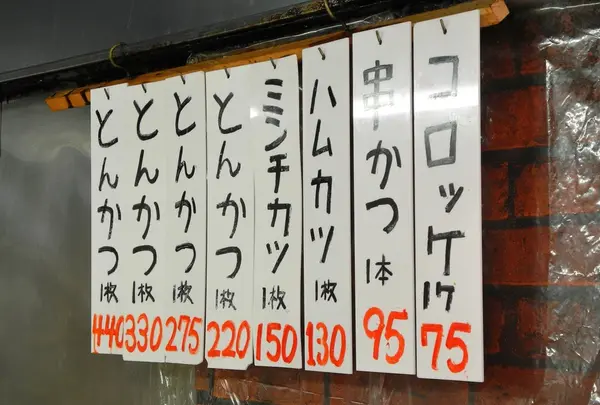 コロッケ 1ケ 75
串かつ 1本 95
ハムカツ 1枚 130
ミンチカツ 1枚 150
とんかつ 1枚 220
とんかつ 1枚 275
とんかつ 1枚 330
とんかつ 1枚 440